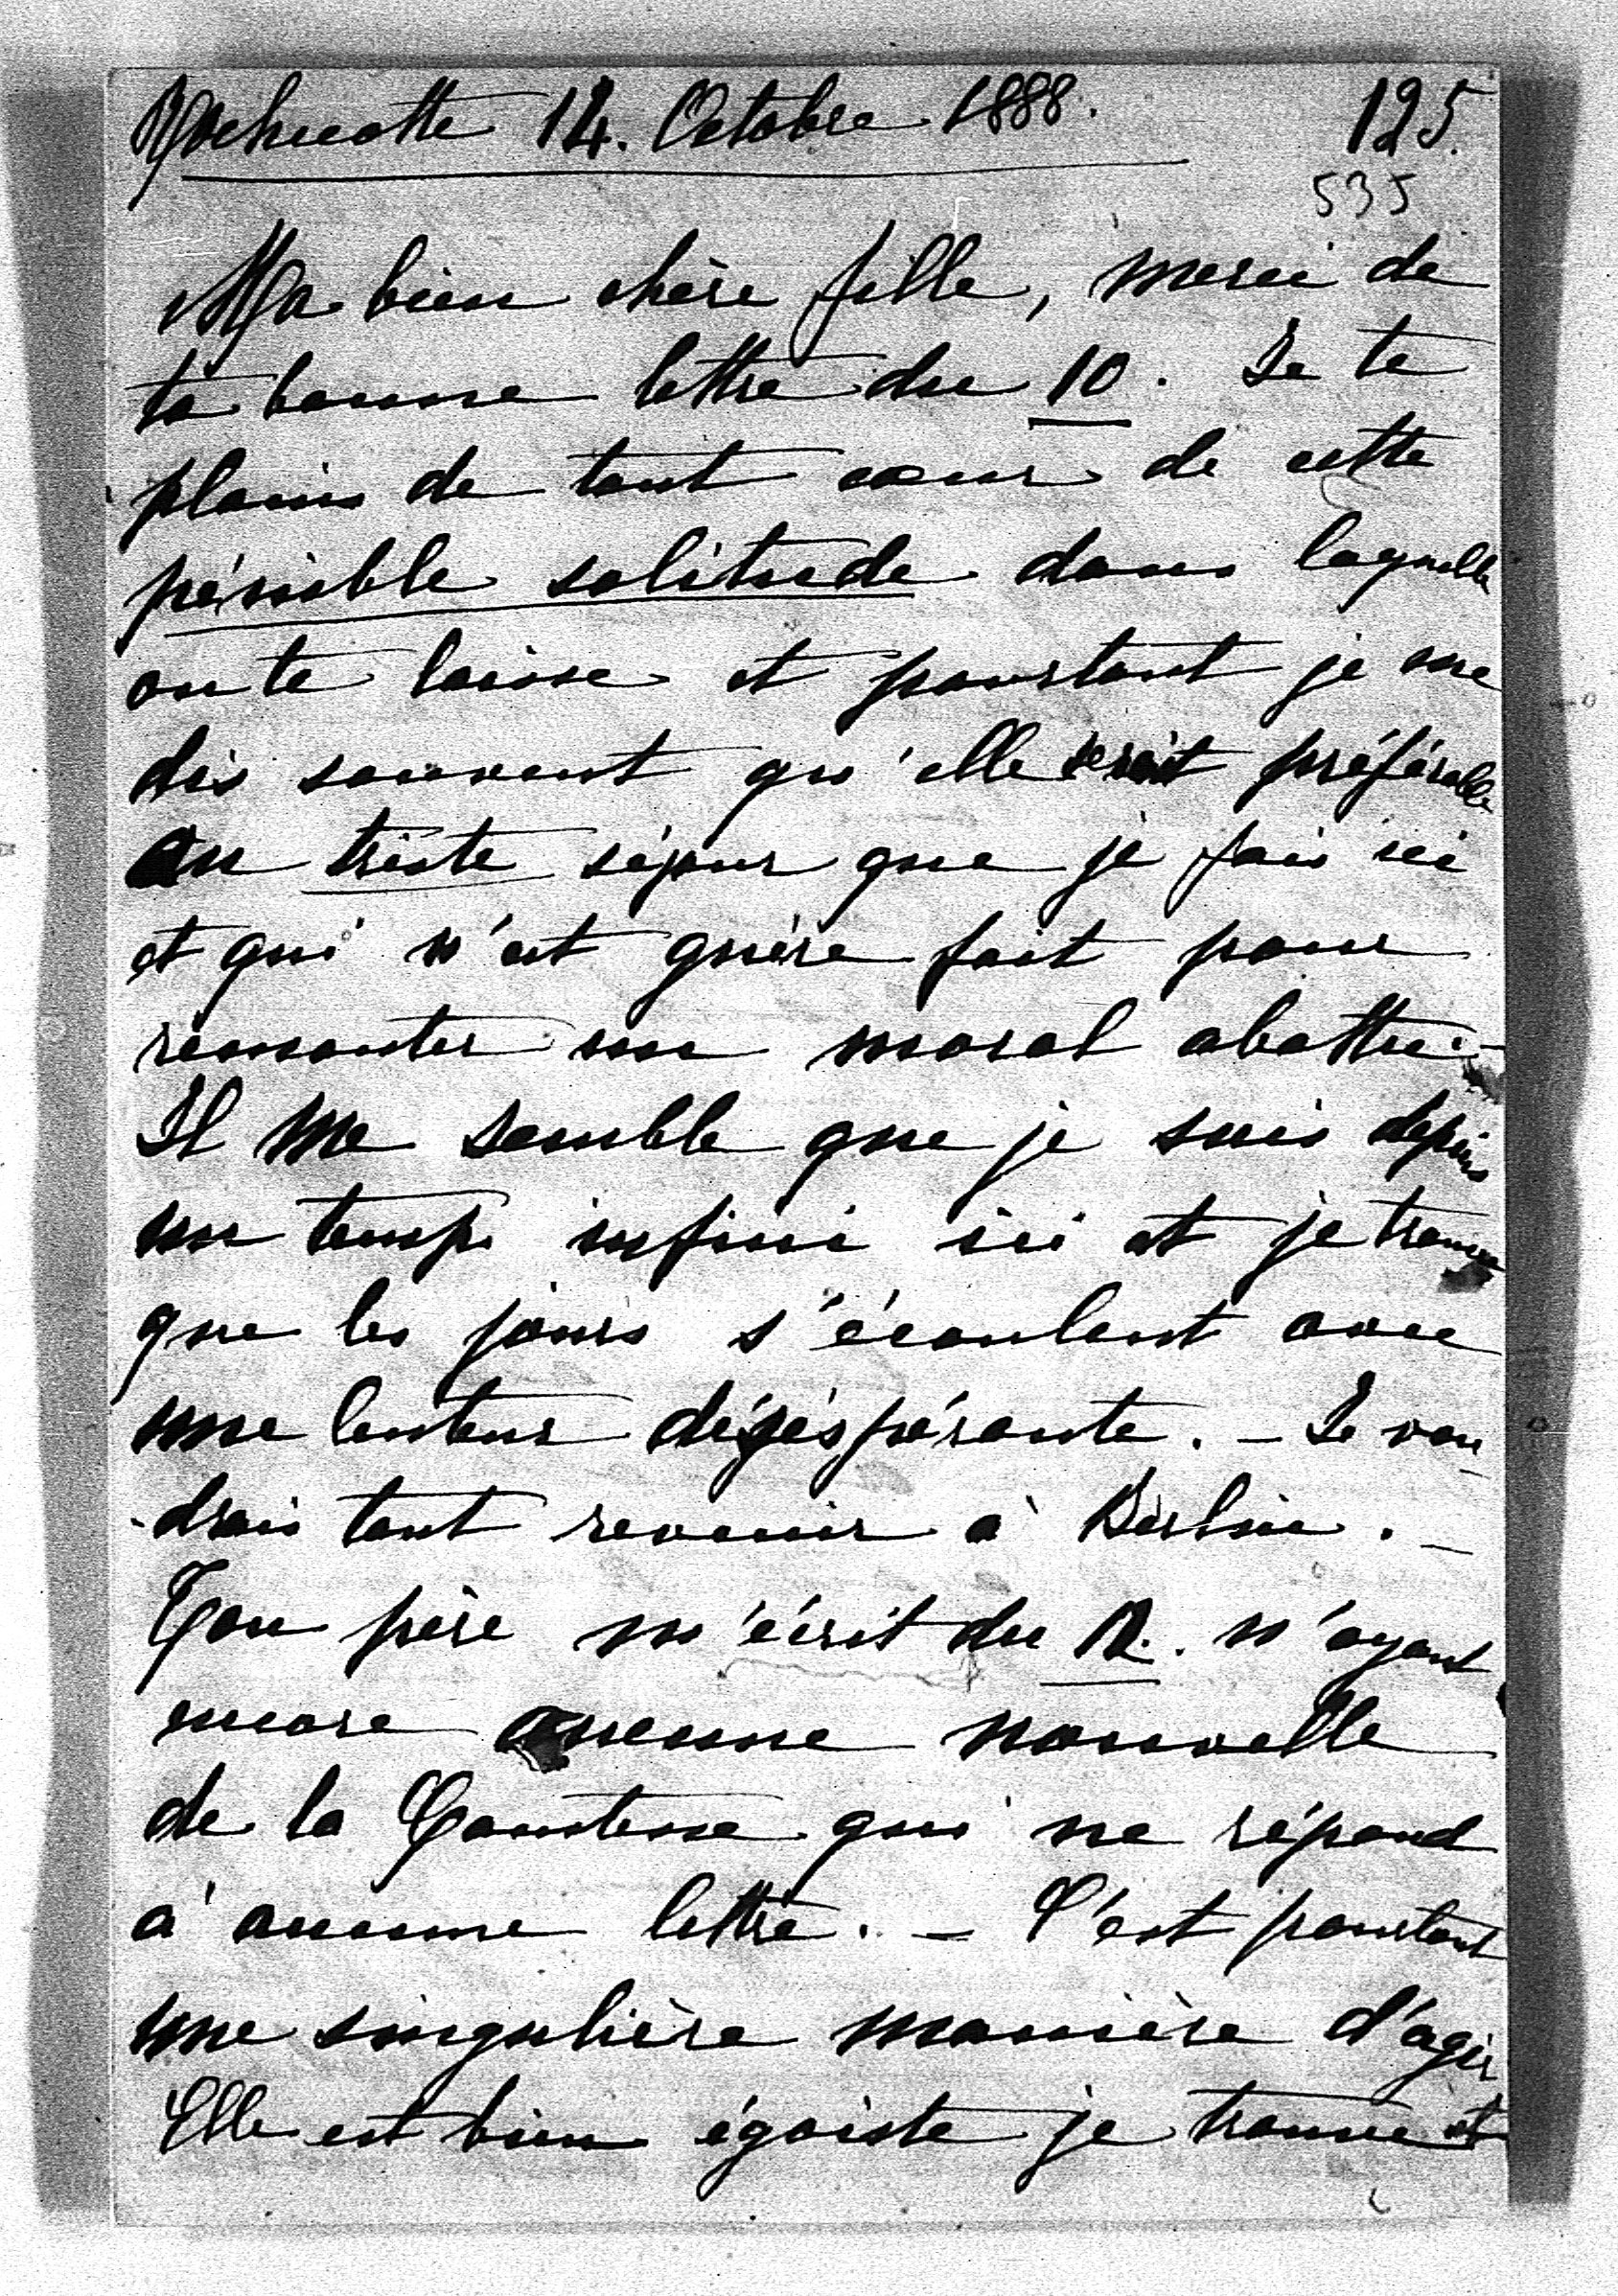 Rochecotte 14. Octobre 1888. 125.
535
Ma bien chère fille, merci de
ta bonne lettre du 10. Je te
plains de tout cœur de cette
pénible solitude dans laquelle
on te laisse et pourtant je me
dis souvent qu'elle serait préférable
au triste séjour que je fais ici
et qui n'est guère fait pour
remonter un moral abattu. -
Il me semble que je suis depuis
un temps infini ici et je trouve
que les jours s'écoulent avec
une lenteur désespérante. - Je vou
-drais tant revenir à Berlin. -
Ton père m'écrit du 12. n'ayant
encore aucune nouvelle
de la Comtesse qui ne répond
à aucune lettre. - C'est pourtant
une singulière manière d'agir
Elle est bien égoiste je trouve et